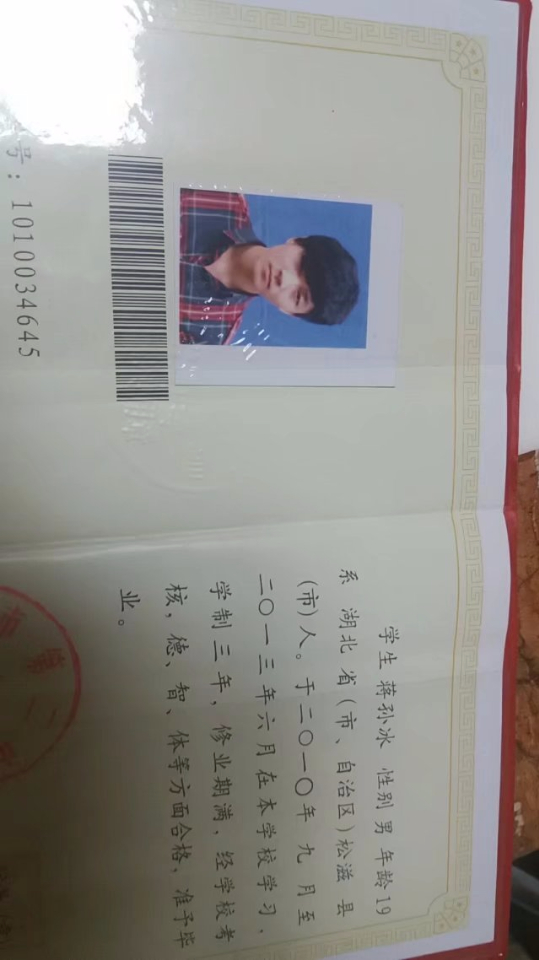 号：1010034645
学生 蒋孙冰 性别 男 年龄 19
系 湖北 省（市、自治区）松滋 县
(市)人。于二〇一〇年 九 月至
二〇一三年六月在本学校学习，
学制三年，修业期满，经学校考
核，德、智、体等方面合格，准予毕
业。